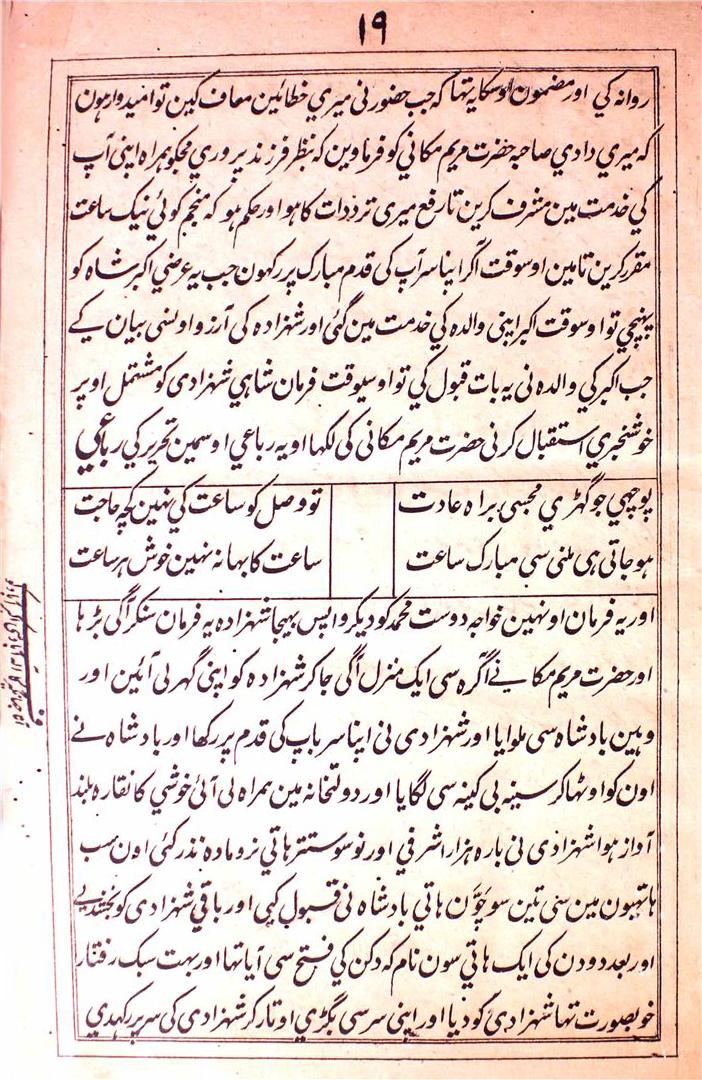 ١٩
روانہ کي اور مضمون اوسکا یہ تہا کہ جب حضور نی میري خطائین معاف کین تو امیدوار ہون
کہ میري دادي صاحبہ حضرت مریم مکاني کو فرماوین کہ بنظر فرزند پروري مجکو ہمراہ اپنی آپ
کي خدمت مین مشرف کرین تا رفع میری ترددات کا ہو اور حکم ہو کہ منجم کوئی نیک ساعت
مقرر کرین تا مین اوسوقت اگر اپنا سر آپ کی قدم مبارک پر رکہون جب یہ عرضی اکبر شاہ کو
پہنچي تو اوسوقت اکبر اپنی والدہ کي خدمت مین گئی اور شہزادہ کی آرزو اونسی بیان کے
جب اکبر کي والدہ نی یہ بات قبول کي تو اوسیوقت فرمان شاہي شہزادی کو مشتمل اوپر
خوشخبري استقبال کرنی حضرت مریم مکانی کی لکہا او یہ رباعي اوسمین تحریر کي رباعي
پوچہي جو گہڑي مجہسی براہ عادت
تو وصل کو ساعت کي نہین کچہ حاجت
ہو جاتی ہی ملنی سی مبارک ساعت
ساعت کا بہانہ نہین خوش ہر ساعت
اور یہ فرمان اونہین خواجہ دوست محمد کو دیکر واپس بہیجا شہزادہ یہ فرمان سنکر آگی بڑہا
اور حضرت مریم مکانے نے آگرہ سی ایک منزل آگی جا کر شہزادہ کو اپنی گہر لی آئین اور
وہین بادشاہ سی ملوایا اور شہزادی نی اپنا سر باپ کی قدم پر رکہا اور بادشاہ نے
اون کو اوٹہا کر سینہ بی کینہ سی لگایا اور دولتخانہ مین ہمراہ لی آئی خوشي کا نقارہ بلند
آواز ہوا شہزادی نی بارہ ہزار اشرفي اور نو سو ستتر ہاتي نر و مادہ نذر کئی اون سب
ہاتہیون مین سی تین سو چوّن ہاتي بادشاہ نی قبول کیی اور باقي شہزادی کو بخشدیے
اور بعد دو دن کی ایک ہاتي سون نام کہ دکن کي فتح سی آیا تہا اور بہت سبک رفتار
خوبصورت تہا شہزادی کو دیا اور اپنی سر سی پگڑي اوتار کر شہزادی کی سر پر رکہدي